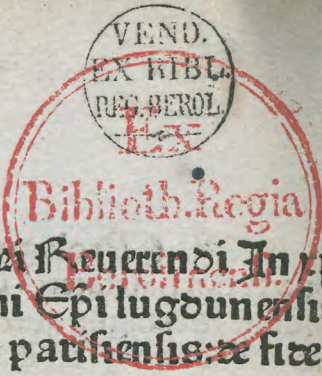 VEND.
EX BIBL.
REG. BEROL.
Ex
Biblioth. Regia
Reuerendi In
ni Epi lugdunensi
parisiensis: de fide